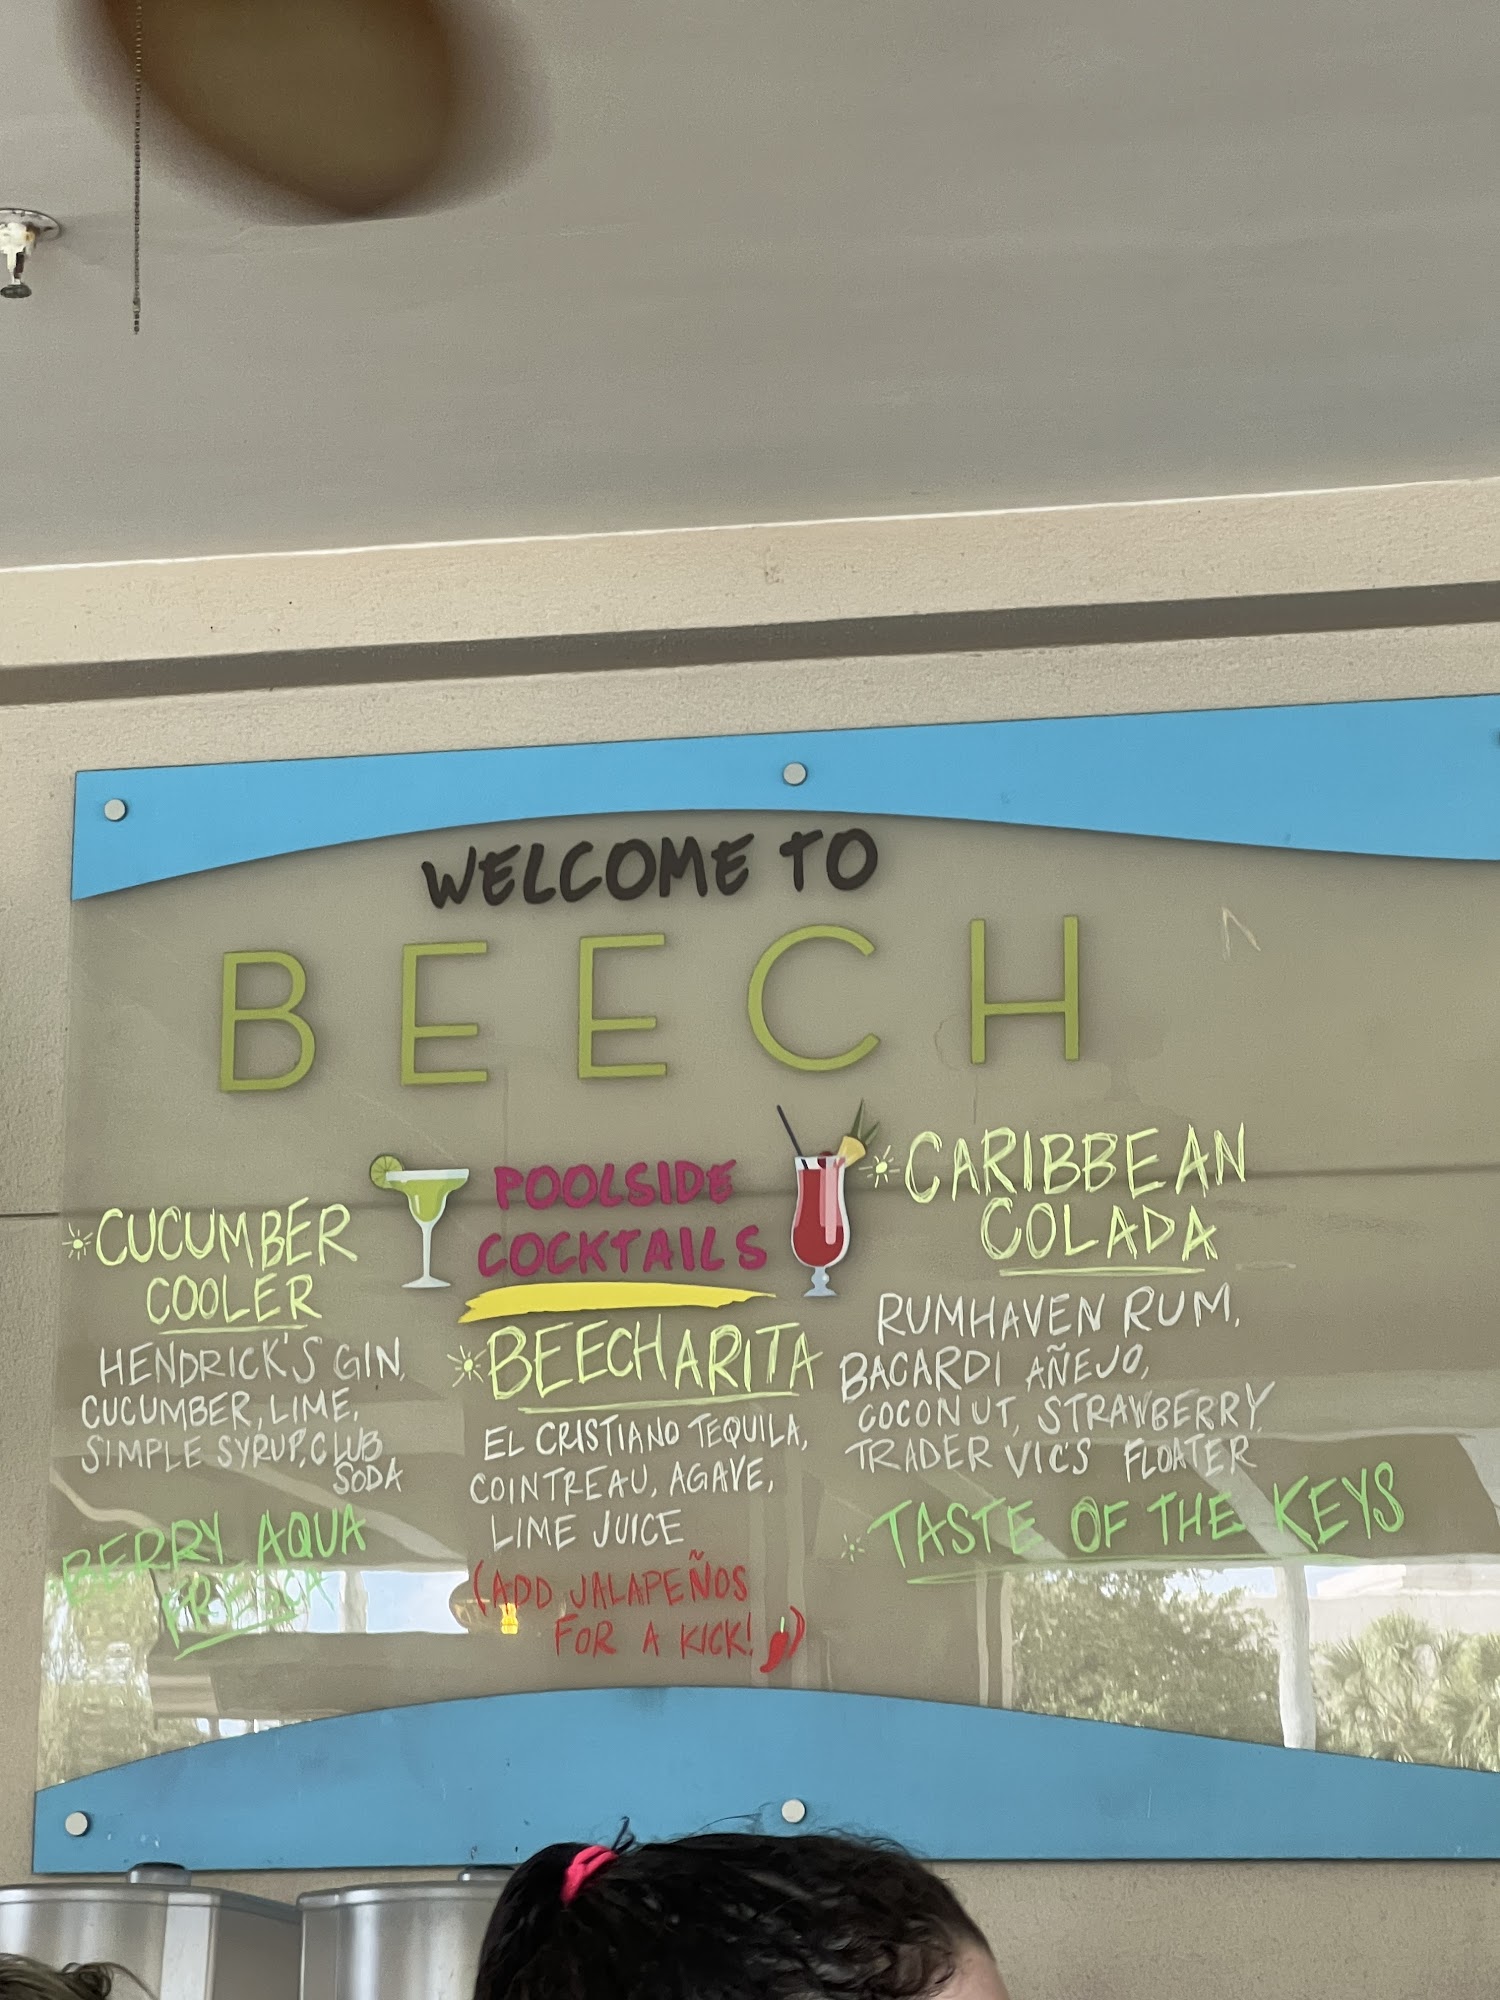 WELCOME TO
BEECH
POOLSIDE
COCKTAILS
CUCUMBER
COOLER
HENDRICK'S GIN,
CUCUMBER, LIME,
SIMPLE SYRUP, CLUB
SODA
BERRY AQUA
FRESCA
BEECHARITA
EL CRISTIANO TEQUILA,
COINTREAU, AGAVE,
LIME JUICE
(ADD JALAPEÑOS
FOR A KICK!
CARIBBEAN
COLADA
RUMHAVEN RUM,
BACARDI AÑEJO,
COCONUT, STRAWBERRY,
TRADER VIC'S FLOATER
TASTE OF THE KEYS